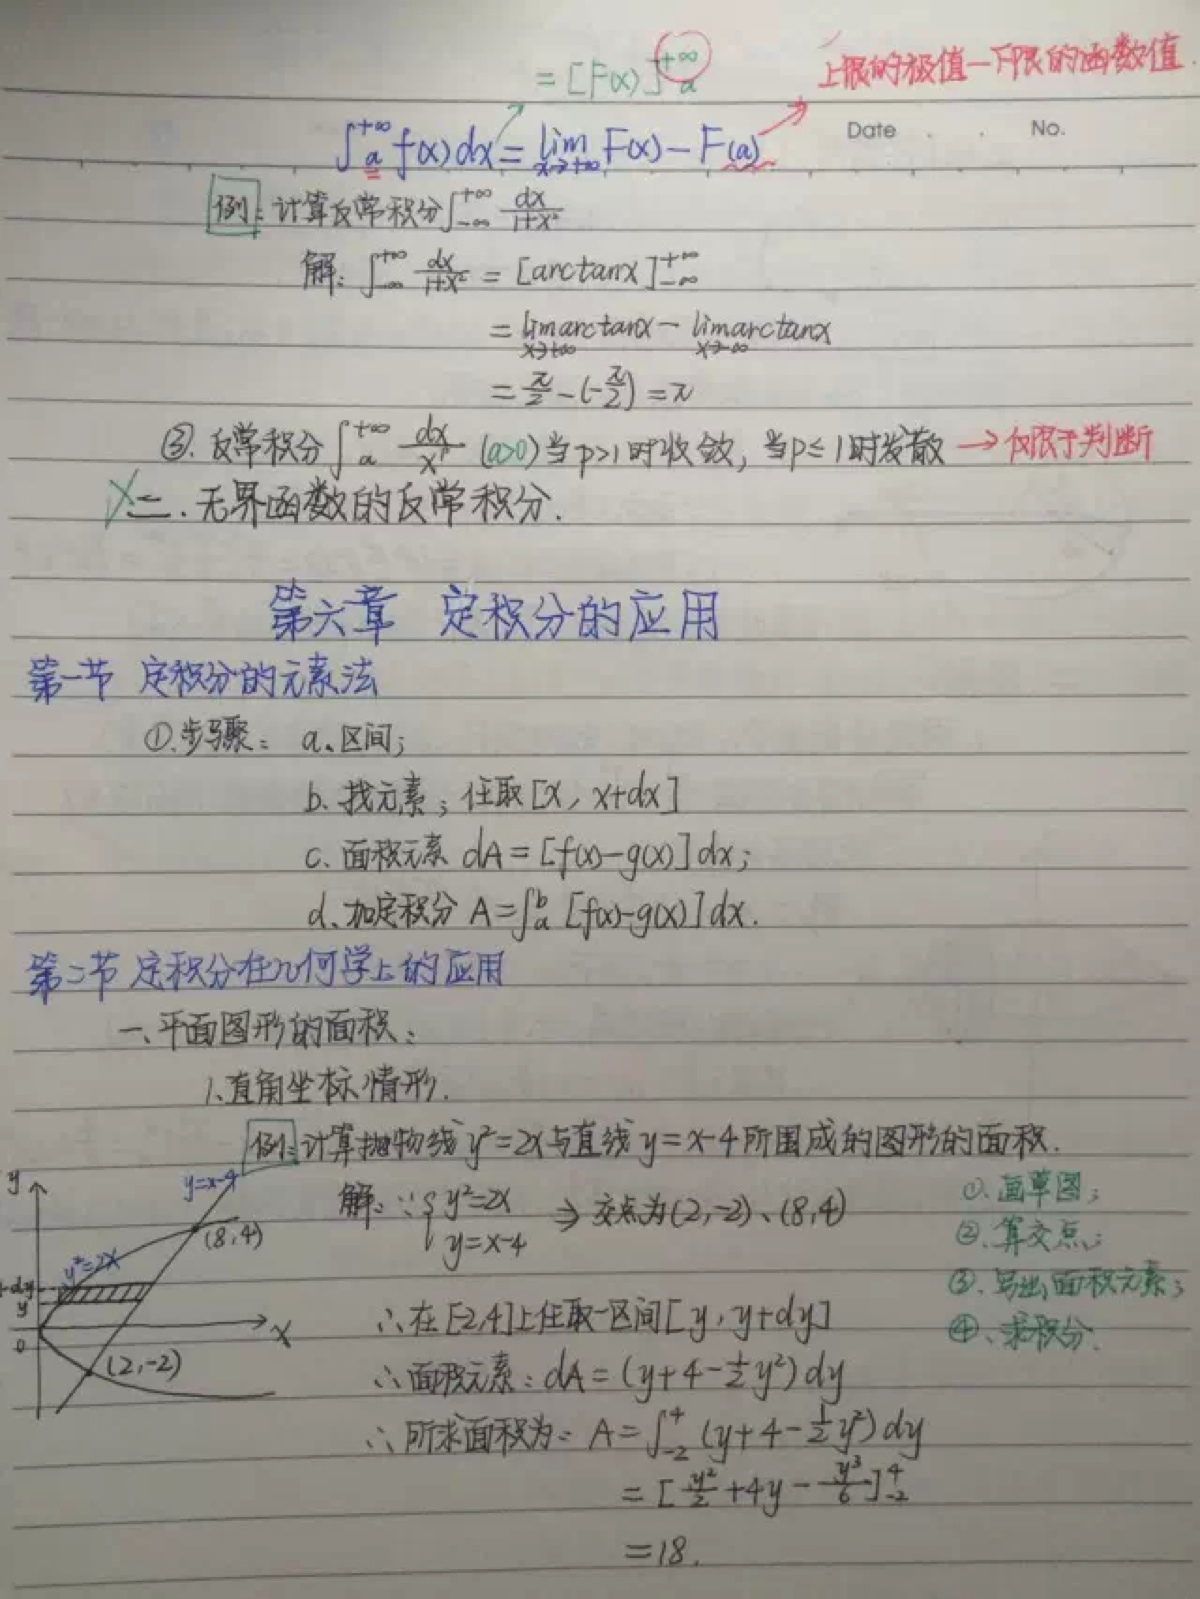 = [F(x)]_a^{+∞}
上限的极值—下限的函数值.
∫_a^{+∞} f(x)dx = lim_{x→+∞} F(x) - F(a)
Date . . No.
例: 计算反常积分 ∫_{-∞}^{+∞} dx/(1+x²)
解: ∫_{-∞}^{+∞} dx/(1+x²) = [arctanx]_{-∞}^{+∞}
= lim_{x→+∞} arctanx - lim_{x→-∞} arctanx
= π/2 - (-π/2) = π
③. 反常积分 ∫_a^{+∞} dx/x^p (a>0) 当p>1时收敛, 当p≤1时发散 → 仅限于判断
二. 无界函数的反常积分.
第六章 定积分的应用
第一节 定积分的元素法
①.步骤: a.区间;
b. 找元素; 任取[x, x+dx]
c. 面积元素 dA = [f(x)-g(x)]dx;
d. 加定积分 A = ∫_a^b [f(x)-g(x)]dx.
第二节 定积分在几何学上的应用
一、平面图形的面积:
1.直角坐标情形.
例1: 计算抛物线y²=2x与直线y=x-4所围成的图形的面积.
解: ∵ { y²=2x
y=x-4
⇒ 交点为(2,-2)、(8,4)
∴ 在[-2,4]上任取一区间[y, y+dy]
∴ 面积元素: dA = (y+4-½y²)dy
∴ 所求面积为: A = ∫_{-2}^4 (y+4-½y²)dy
= [y²/2 + 4y - y³/6]_{-2}^4
= 18.
①. 画草图;
②. 算交点;
③. 写出面积元素;
④、求积分.
y
y=x-4
(8,4)
y²=2x
+dy
y
0
x
(2,-2)